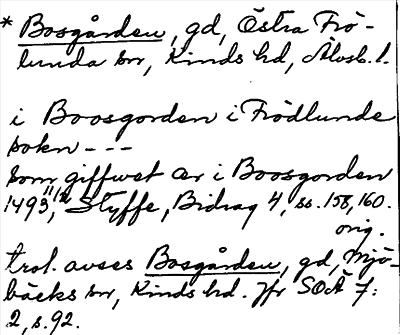 * Bosgården, gd, Östra Frö-
lunda sn, Kinds hd, Älvsb. l.
i Boosgorden i Frödlunde
sokn - - -
som giffwet ær i Boosgorden
1493 11/12, Styffe, Bidrag 4, ss. 158, 160.
orig.
trol. avses Bosgården, gd, Mjö-
bäcks sn, Kinds hd. Jfr SOÄ 7:
2, s. 92.